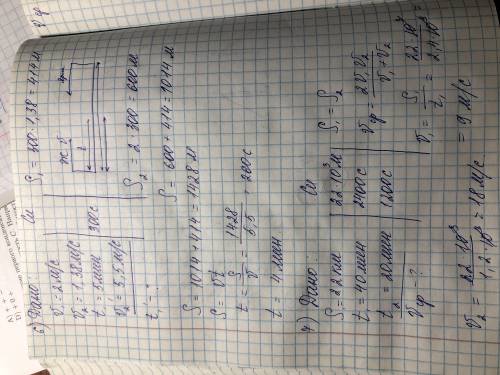 6) Дано: Си
v₁ = 2 м/с
v₂ = 1.38 м/с
t = 5 мин 300 с
v₂ = 5.5 м/с
t₁ - ?
S₁ = 300 · 1,38 = 414 м
S₂ = 2 · 300 = 600 м
S = 600 + 414 = 1014 м
S = 1014 + 414 = 1428 м
S = vt
t = S/v = 1428/5,5 260 с
t = 4 мин
7) Дано: Си
S₁ = 22 км 22·10³ м
t₁ = 40 мин 2400 с
t₂ = 20 мин 1200 с
vср - ?
S₁ = S₂
vср = 2v₁v₂/v₁+v₂
v₁ = S₁/t₁ = 22·10³/2,4·10³ = 9 м/с
v₂ = 22·10³/1,2·10³ = 18 м/с